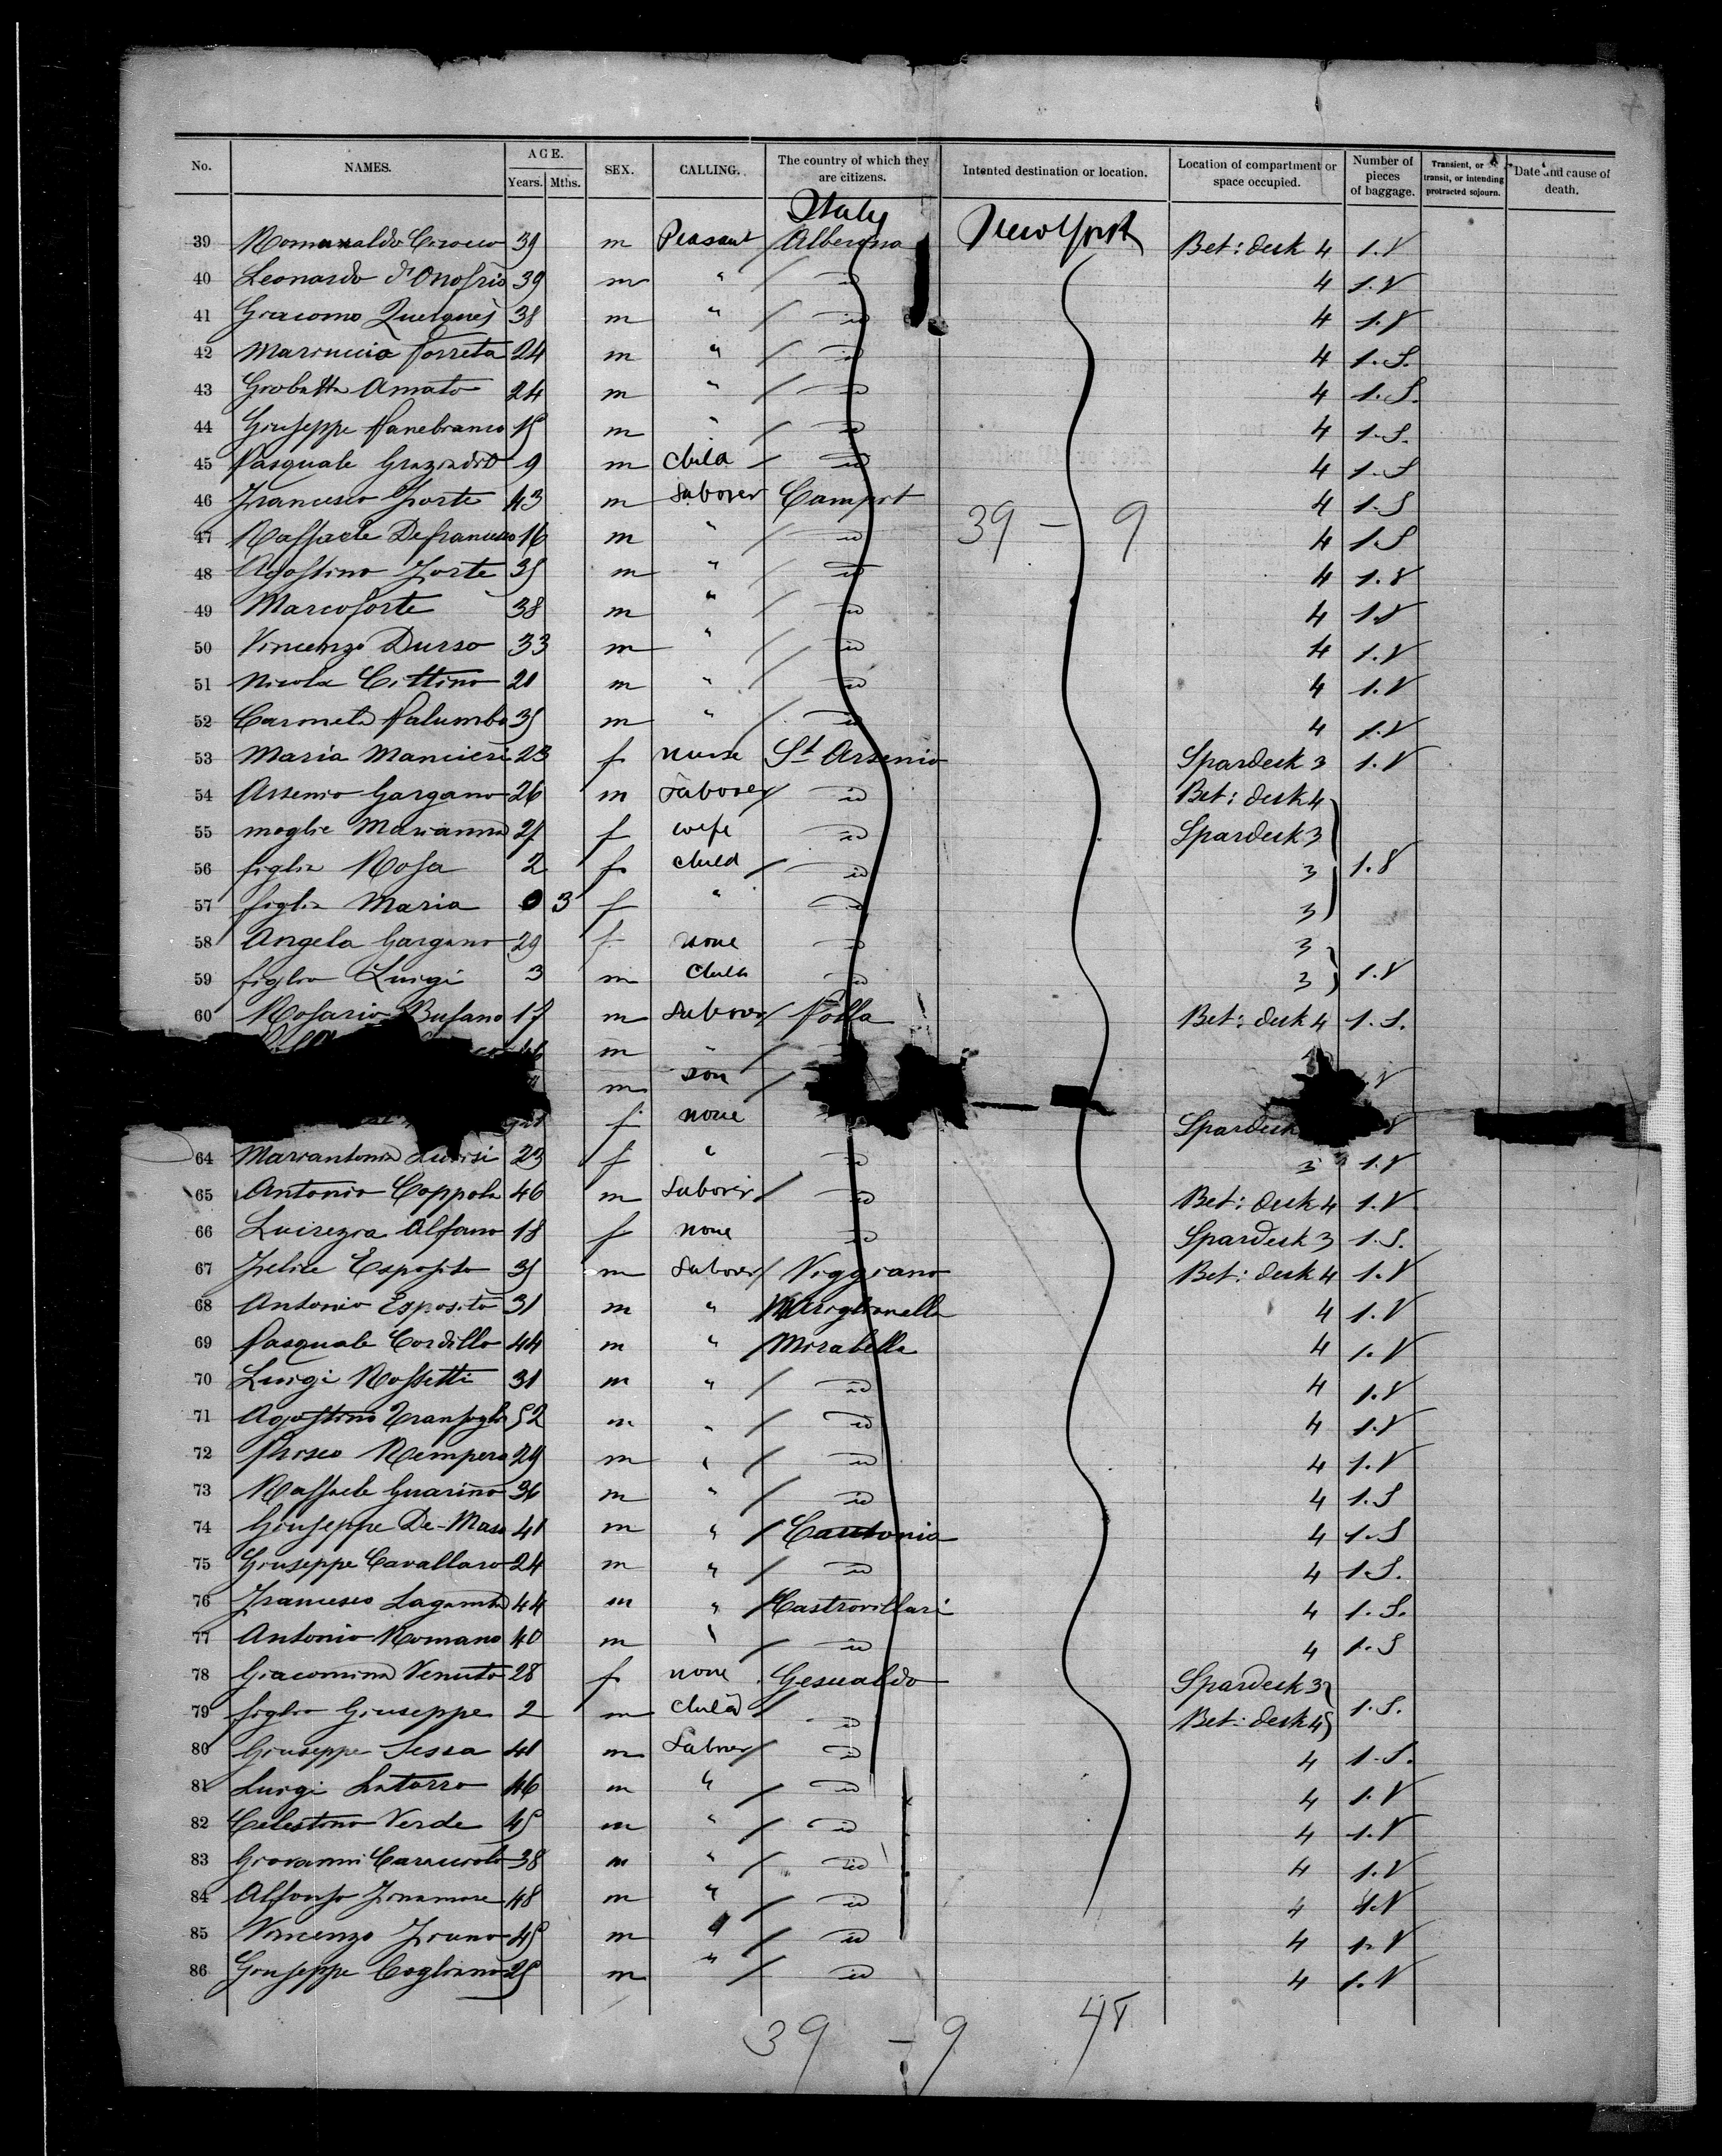 No. NAMES. AGE. Years. Mths. SEX. CALLING. The country of which they are citizens. Intented destination or location. Location of compartment or space occupied. Number of pieces of baggage. Transient, or transit, or intending protracted sojourn. Date and cause of death.
Italy
39 39 m Peasant New York Bet: desk 4 1.V
40 Leonardo d'Onofrio 39 m " id 4 1.V
41 Giacomo 38 m " id 4 1.V
42 24 m " id 4 1.S.
43 Giobatta Amato 24 m " id 4 1.S.
44 Giuseppe Panebianco 15 m " id 4 1.S.
45 Pasquale 9 m child id 4 1.S
46 Francesco Forte 43 m Laborer 4 1.S
47 Raffaele Defrancesco 16 m " id 39 - 9 4 1.S
48 Agostino Forte 35 m " id 4 1.8
49 Marco forte 38 m " id 4 1.V
50 Vincenzo Durso 33 m " id 4 1.V
51 Nicola Cittino 21 m " id 4 1.V
52 Palumbo 35 m " id 4 1.V
53 Maria 23 f nurse St Arsenio Spardeck 3 1.V
54 Arsenio Gargano 26 m Laborer id Bet: desk 4
55 moglie Marianna 27 f wife id Spardeck 3
56 figlia Rosa 2 f child id 3 1.8
57 figlia Maria 0 3 f " id 3
58 Angela Gargano 29 f none id 3
59 figlio Luigi 3 m child id 3 1.V
60 Rosario Bufano 17 m Laborer Polla Bet: desk 4 1.S.
m "
m son
f none Spardeck
64 Mariantonia 23 f " id 3 1.V
65 Antonio Coppola 46 m Laborer id Bet: desk 4 1.V
66 Alfano 18 f none id Spardeck 3 1.S.
67 Felice Esposito 35 m Laborer Viggiano Bet: desk 4 1.V
68 Antonio Esposito 31 m " Mariglianella 4 1.V
69 Pasquale Cordillo 44 m " Mirabella 4 1.V
70 Luigi Rossetti 31 m " id 4 1.V
71 Agostino 52 m " id 4 1.V
72 Prisco 29 m " id 4 1.V
73 Raffaele Guarino 36 m " id 4 1.S
74 Giuseppe De-Maso 41 m " 4 1.S
75 Giuseppe Cavallaro 24 m " id 4 1.S.
76 Francesco Lagamba 44 m " Castrovillari 4 1.S.
77 Antonio Romano 40 m " id 4 1.S
78 Giacomina Venuto 28 f none Gesualdo Spardeck 3
79 figlio Giuseppe 2 m child id Bet: desk 4 1.S.
80 Giuseppe Sessa 41 m Laborer id 4 1.S.
81 Luigi 46 m " id 4 1.V
82 Celestino Verde 45 m " id 4 1.V
83 Giovanni Caracciolo 38 m " id 4 1.V
84 Alfonso 48 m " id 4 1.V
85 Vincenzo 45 m " id 4 1.V
86 Giuseppe Cogliano 25 m " id 4 1.V
39 - 9 48